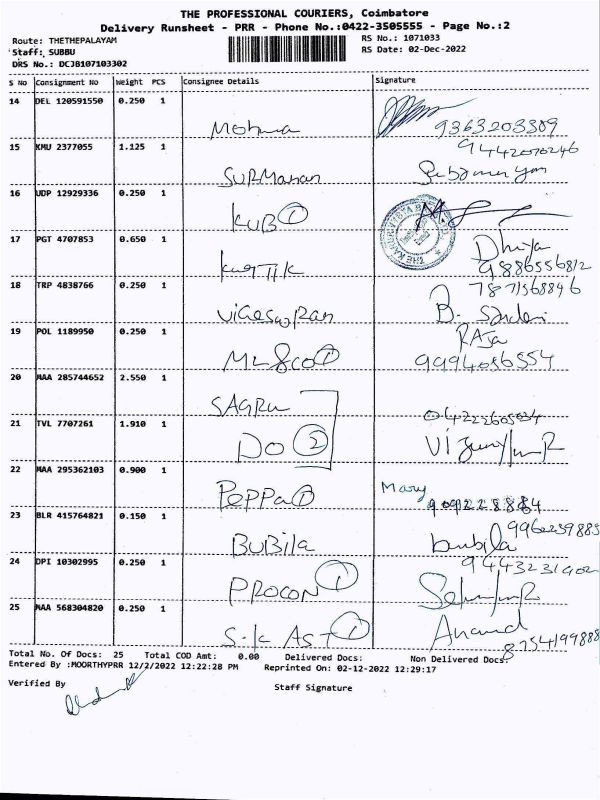 THE PROFESSIONAL COURIERS, Coimbatore
Delivery Runsheet - PRR - Phone No.:0422-3505555 - Page No.:2
Route: THETHEPALAYAM RS No.: 1071033
Staff: SUBBU RS Date: 02-Dec-2022
DRS No.: DCJB107103302
S No Consignment No Weight PCS Consignee Details Signature
14 DEL 120591550 0.250 1
Mohana 9363203309
15 KMU 2377055 1.125 1 9442070246
SURMANAN
16 UDP 12929336 0.250 1
KUB ①
17 PGT 4707853 0.650 1 Dhivya
Kartik 9886556812
18 TRP 4838766 0.250 1 7871568846
Vigeswaran B.
19 POL 1189950 0.250 1 RAJA
①  9994056554
20 MAA 285744652 2.550 1
SAGRU 04222605034
21 TVL 7707261 1.910 1
DO ②
22 MAA 295362103 0.900 1 Mary
Peppa ①
23 BLR 415764821 0.150 1 9960239883
BUBila bubila
24 DPI 10302995 0.250 1 9443231902
PROCON ①
25 MAA 568304820 0.250 1 Anand
S.K AST ① 8754199888
Total No. Of Docs: 25 Total COD Amt: 0.00 Delivered Docs: Non Delivered Docs:
Entered By :MOORTHYPRR 12/2/2022 12:22:28 PM Reprinted On: 02-12-2022 12:29:17
Verified By Staff Signature